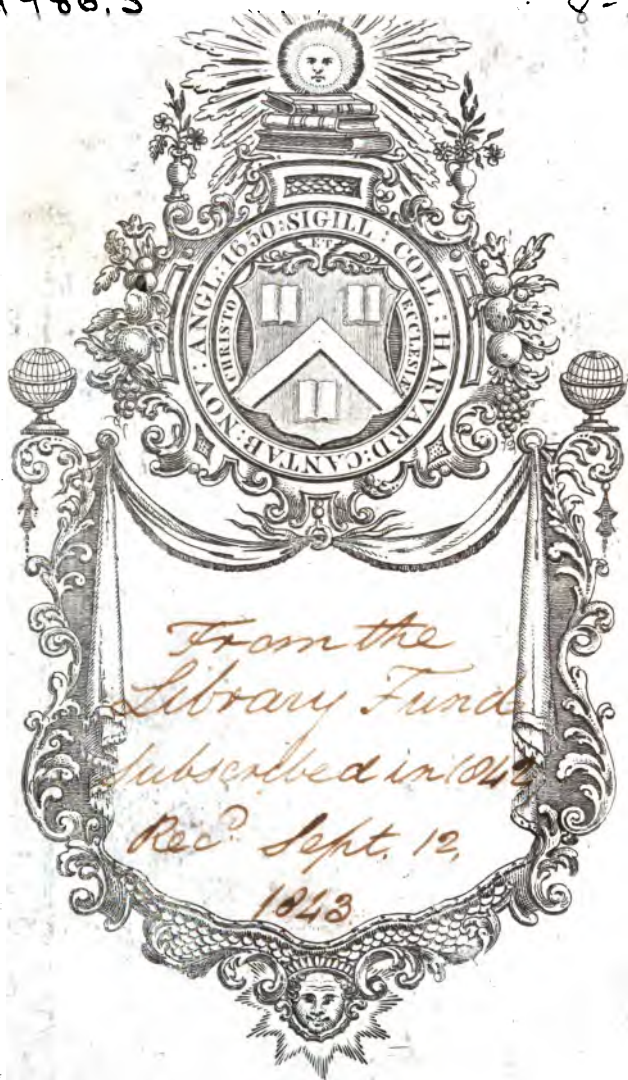 1786.3
SIGILL : COLL : HARVARD : CANTAB : NOV : ANGL : 1650 :
CHRISTO ET ECCLESIÆ
From the
Library Fund
subscribed in 1842
Rec.d Sept. 12,
1843